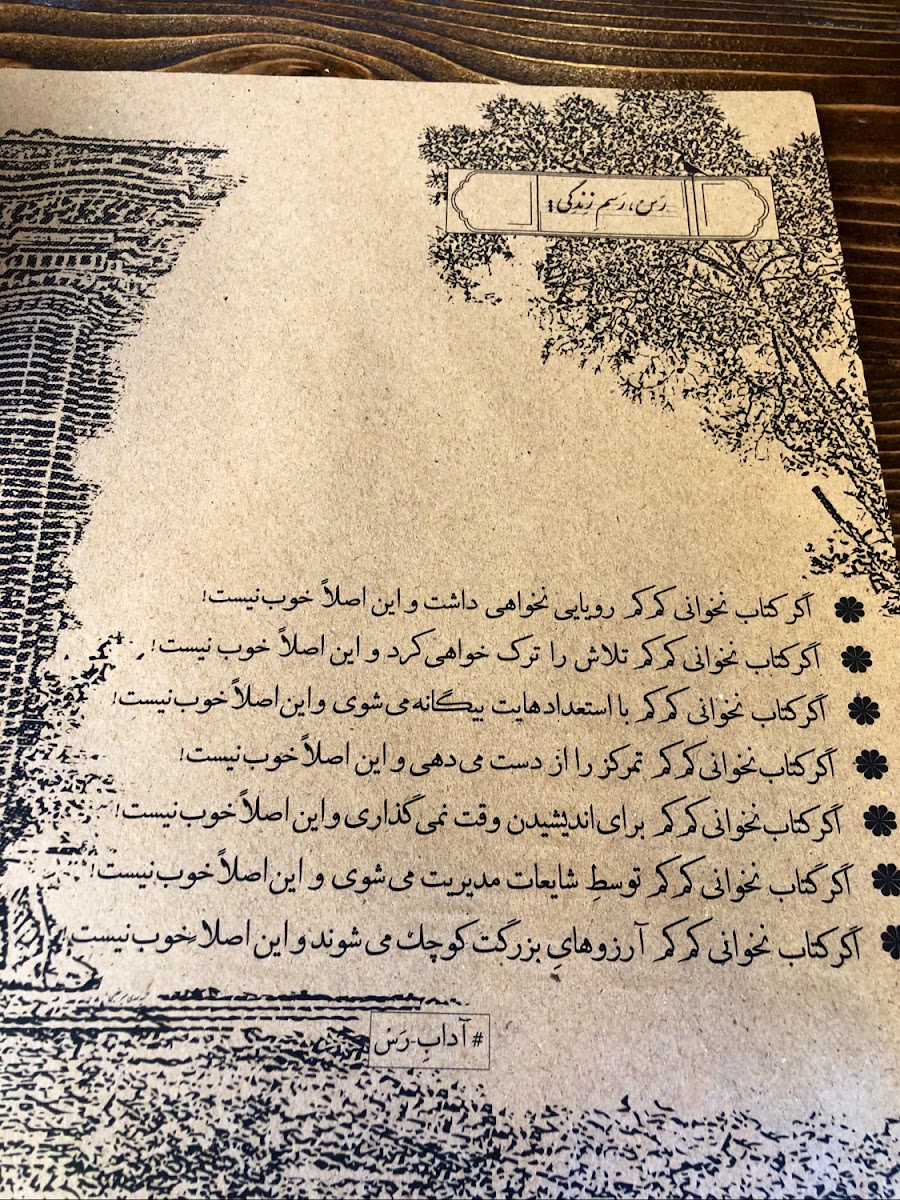 رَس، رَسمِ زندگی؛
اگر کتاب نخوانی کم‌کم رویایی نخواهی داشت و این اصلاً خوب نیست!
اگر کتاب نخوانی کم‌کم تلاش را ترک خواهی‌کرد و این اصلاً خوب نیست!
اگر کتاب نخوانی کم‌کم با استعدادهایت بیگانه می‌شوی و این اصلاً خوب نیست!
اگر کتاب نخوانی کم‌کم تمرکز را از دست می‌دهی و این اصلاً خوب نیست!
اگر کتاب نخوانی کم‌کم برای اندیشیدن وقت نمی‌گذاری و این اصلاً خوب نیست!
اگر کتاب نخوانی کم‌کم توسطِ شایعات مدیریت می‌شوی و این اصلاً خوب نیست!
اگر کتاب نخوانی کم‌کم آرزوهایِ بزرگت کوچک می‌شوند و این اصلا خوب نیست!
# آدابِ-رَس